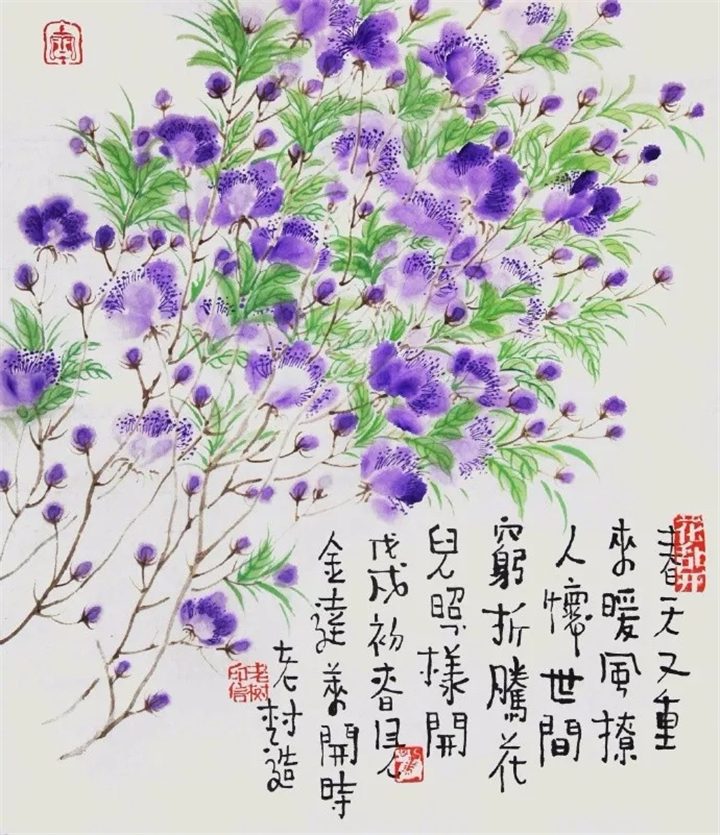 春天又重
來暖風撩
人懷世間
窮折騰花
兒照樣開
戊戌初春見
金達萊開時
老樹造
老树印信